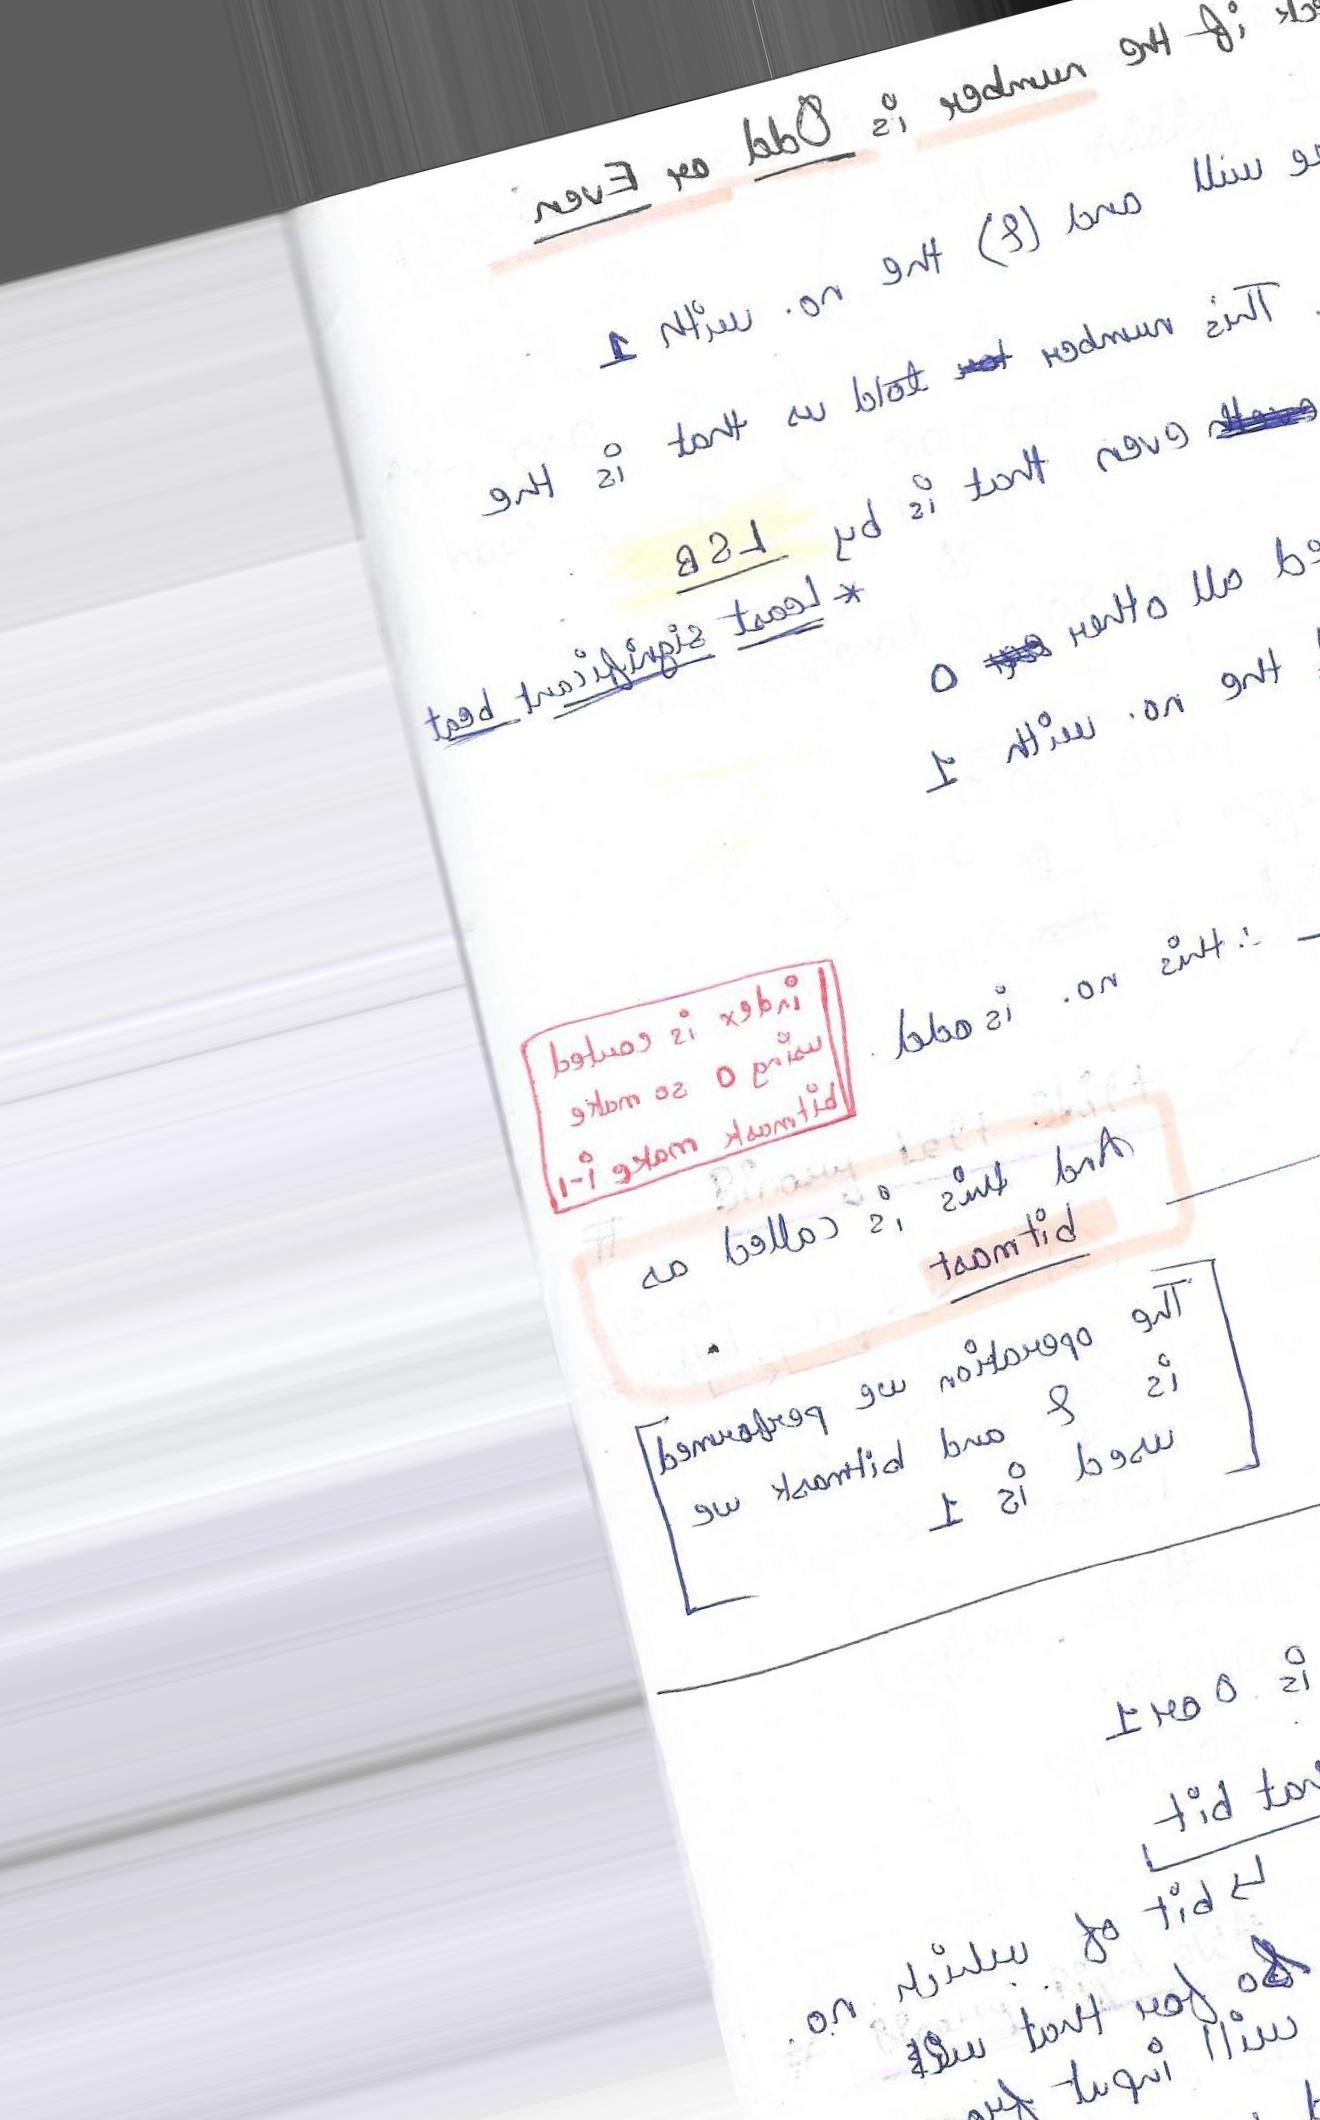 if the number is Odd or Even
will and (&) the no. with 1
. This number told us that is the
even that is by LSB
* Least significant beat
all other 0
the no. with 1
∴ this no. is odd.
index is couted
using 0 so make
bitmask make i-1
And this is called as
bitmast
The operation we performed
is & and bitmask we
used is 1
is 0 or 1
bit
↳ bit of which no.
So for that
will input